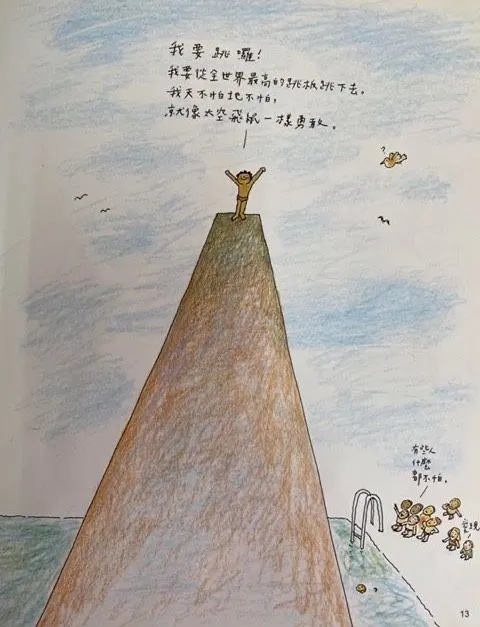 我要跳囉！
我要從全世界最高的跳板跳下去。
我天不怕地不怕，
就像太空飛鼠一樣勇敢。
?
有些人
什麼
都不怕。
?
13